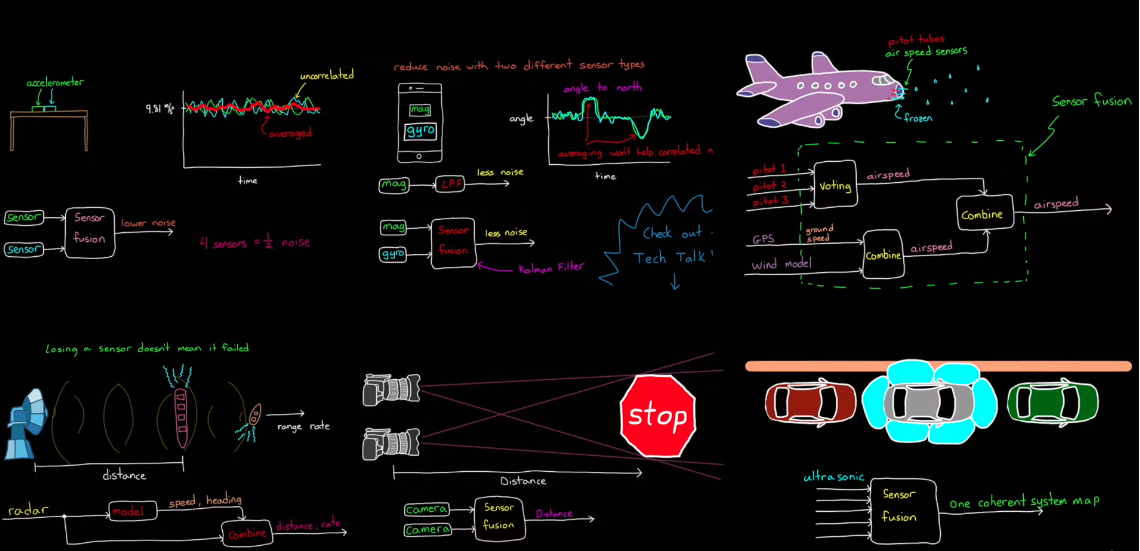 accelerometer
9.81 m/s
uncorrelated
averaged
time
sensor
sensor
Sensor
fusion
lower noise
4 sensors = 1/2 noise
reduce noise with two different sensor types
mag
gyro
angle to north
angle
averaging won't help correlated n
time
mag
LPF
less noise
mag
gyro
Sensor
fusion
less noise
Kalman Filter
Check out
Tech Talk!
pitot tubes
air speed sensors
frozen
Sensor fusion
pitot 1
pitot 2
pitot 3
Voting
airspeed
GPS
ground
speed
wind model
Combine
airspeed
Combine
airspeed
Losing a sensor doesn't mean it failed
range rate
distance
radar
model
speed, heading
Combine
distance, rate
stop
Distance
camera
camera
Sensor
fusion
Distance
ultrasonic
Sensor
fusion
One coherent system map